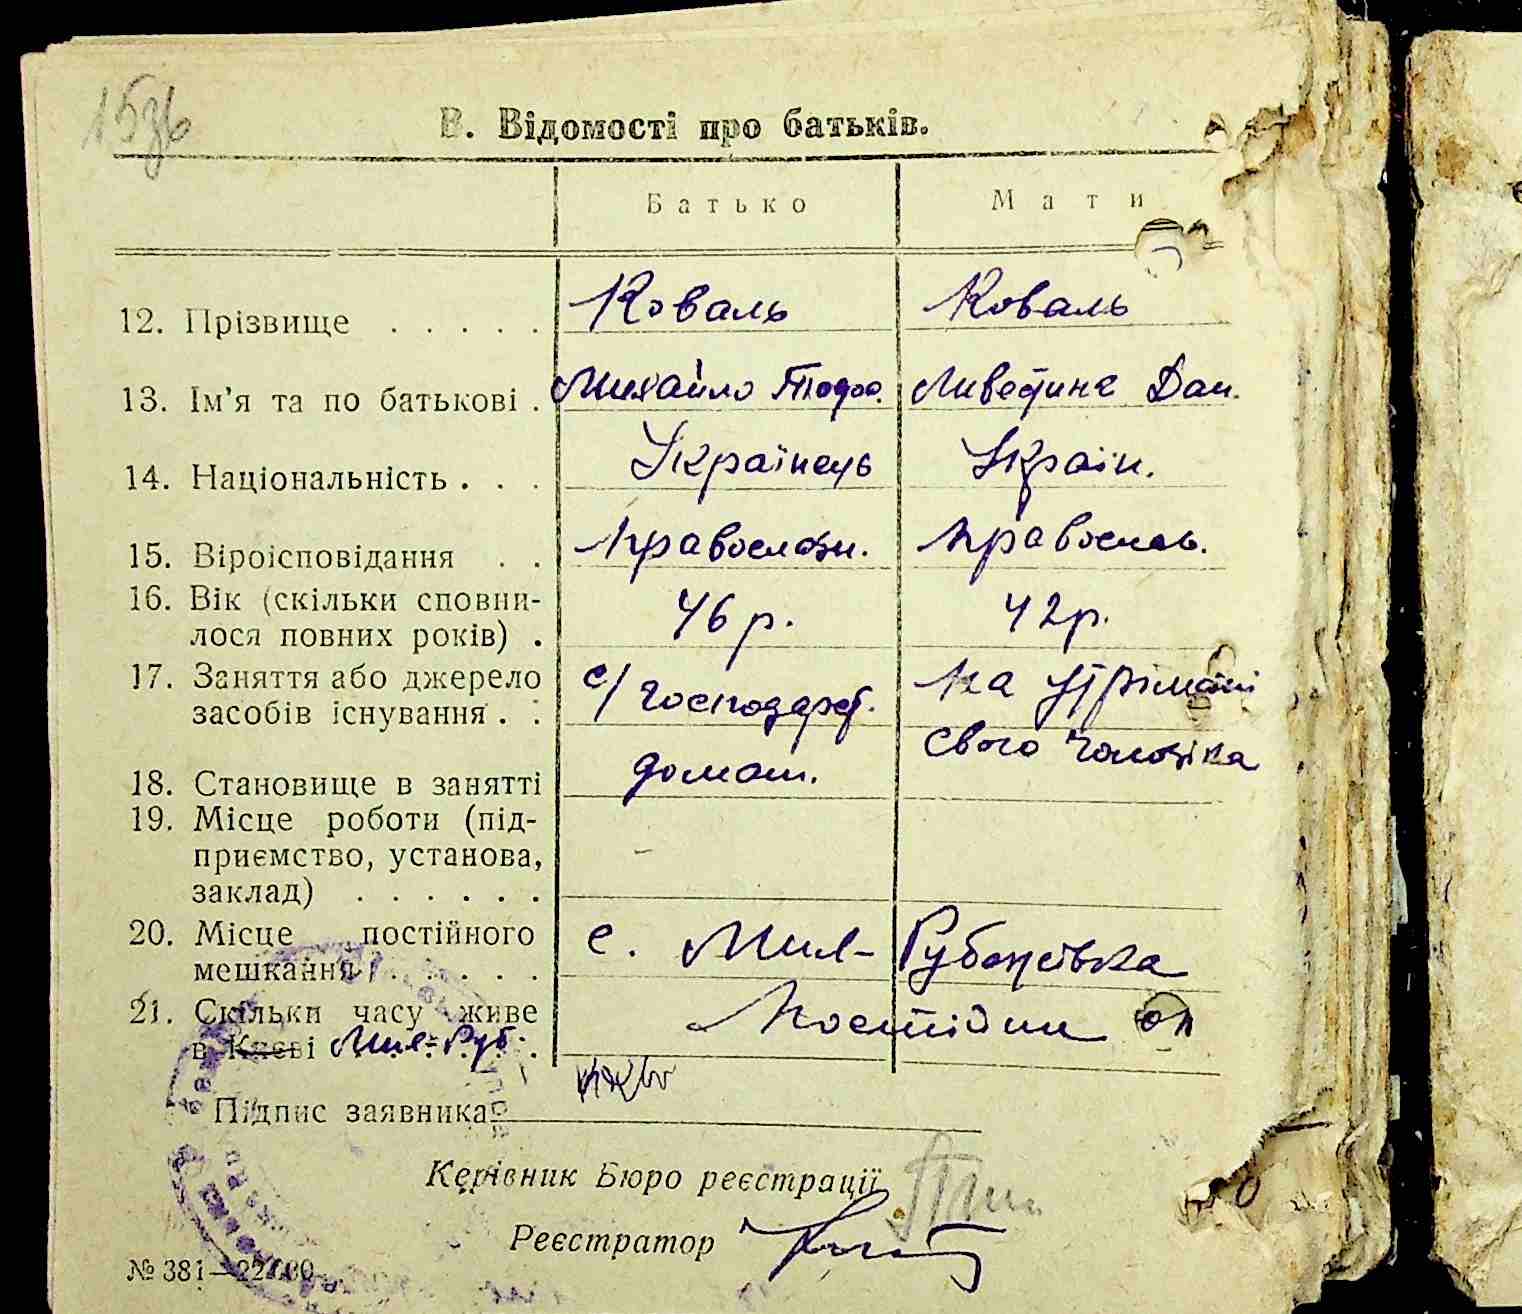 153б
В. Відомості про батьків.
Батько Мати
12. Прізвище . . . . . Коваль Коваль
13. Ім'я та по батькові . Михайло Тодос. Миведина Дан.
14. Національність . . . Українець Україн.
15. Віроісповідання . . Православн. Православ.
16. Вік (скільки сповни-
лося повних років) . 46 р. 42 р.
17. Заняття або джерело с/господарст. на утріманні
засобів існування . .
свого чоловіка
18. Становище в занятті домаш.
19. Місце роботи (під-
приємство, установа, –
заклад) . . . . . .
20. Місце постійного с. Мил-Рубежівка
мешкання . . . . .
21. Скільки часу живе Постійни
в Києві Мил-Руб.
Підпис заявника
Керівник Бюро реєстрації
Реєстратор
№ 381—